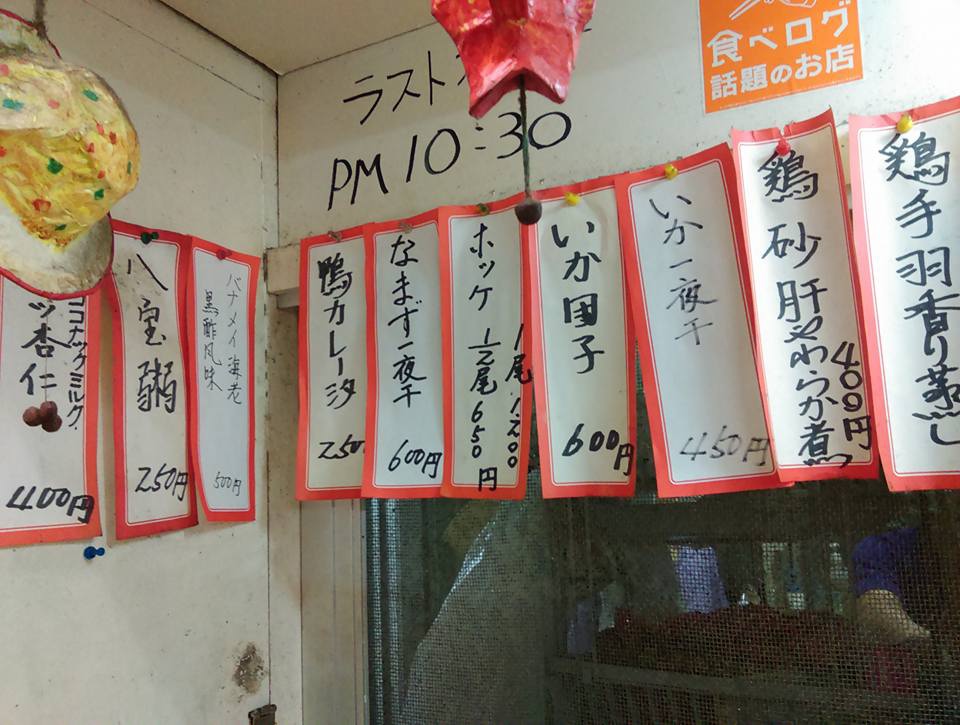 食べログ
話題のお店
ラスト
PM 10:30
ココナツミルク
杏仁
400円
八宝粥
250円
バナメイ海老
黒酢風味
500円
鴨カレー汐
250
なまず一夜干
600円
ホッケ 1/2尾 650円
1尾 1200
いか団子
600円
いか一夜干
450円
鶏砂肝やわらか煮
400円
鶏手羽香り蒸し